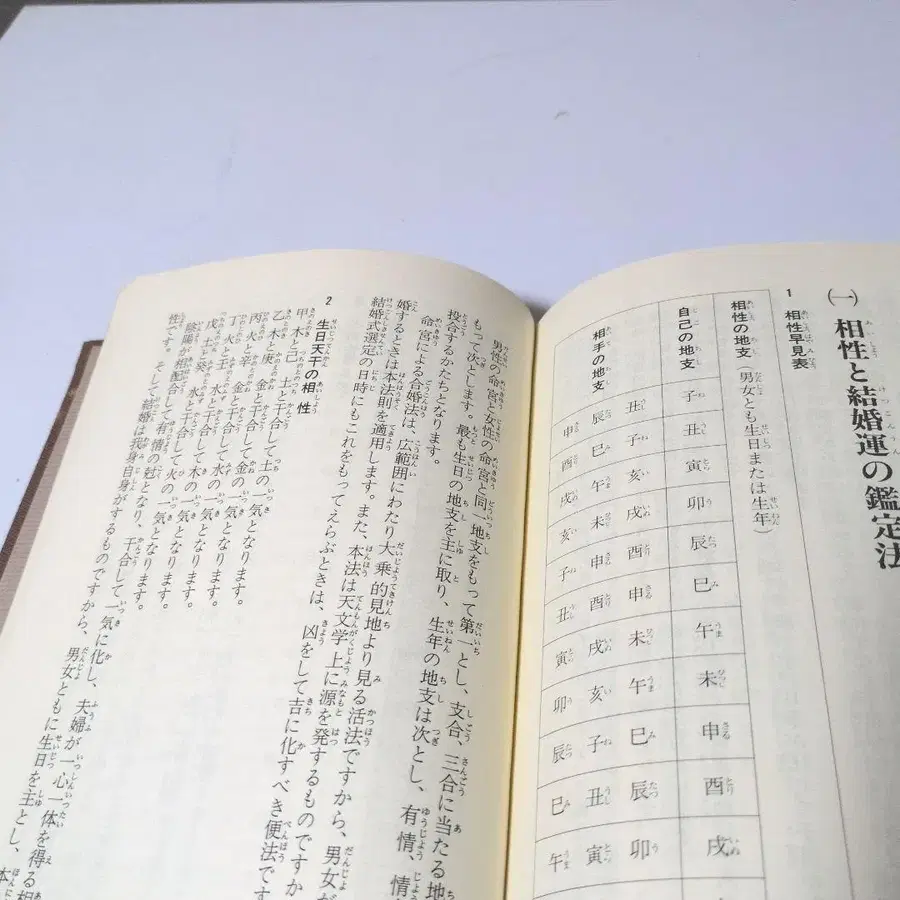 ㈠ 相性と結婚運の鑑定法
1 相性早見表
相性の地支（男女とも生日または生年）
自己の地支 子 丑 寅 卯 辰 巳 午 未 申 酉 戌
相手の地支
丑 子 亥 戌 酉 申 未 午 巳 辰 卯
辰 巳 午 未 申 酉 戌 亥 子 丑 寅
申 酉 戌 亥 子 丑 寅 卯 辰 巳 午
男性の命宮と女性の命宮と同一地支をもって第一とし、支合、三合に当たる地
もって次とします。最も生日の地支を主に取り、生年の地支は次とし、有情、情
投合するかたちとなります。
命宮による合婚法は、広範囲にわたり大乗的見地より見る活法ですから、男女が
婚するときは本法則を適用します。また、本法は天文学上に源を発するものですか
結婚式選定の日時にもこれをもってえらぶときは、凶をして吉に化すべき便法です
2 生日天干の相性
甲木と己 土と干合して土の一気となります。
乙木と庚 金と干合して金の一気となります。
丙火と辛 金と干合して水の一気となります。
丁火と壬 水と干合して木の一気となります。
戊土と癸 水と干合して火の一気となります。
陰陽が相配合して有情の尅となり、干合して一気に化し、夫婦が一心一体を得る相
性です。そして結婚は我身自身がするものですから、男女ともに生日を主とし、